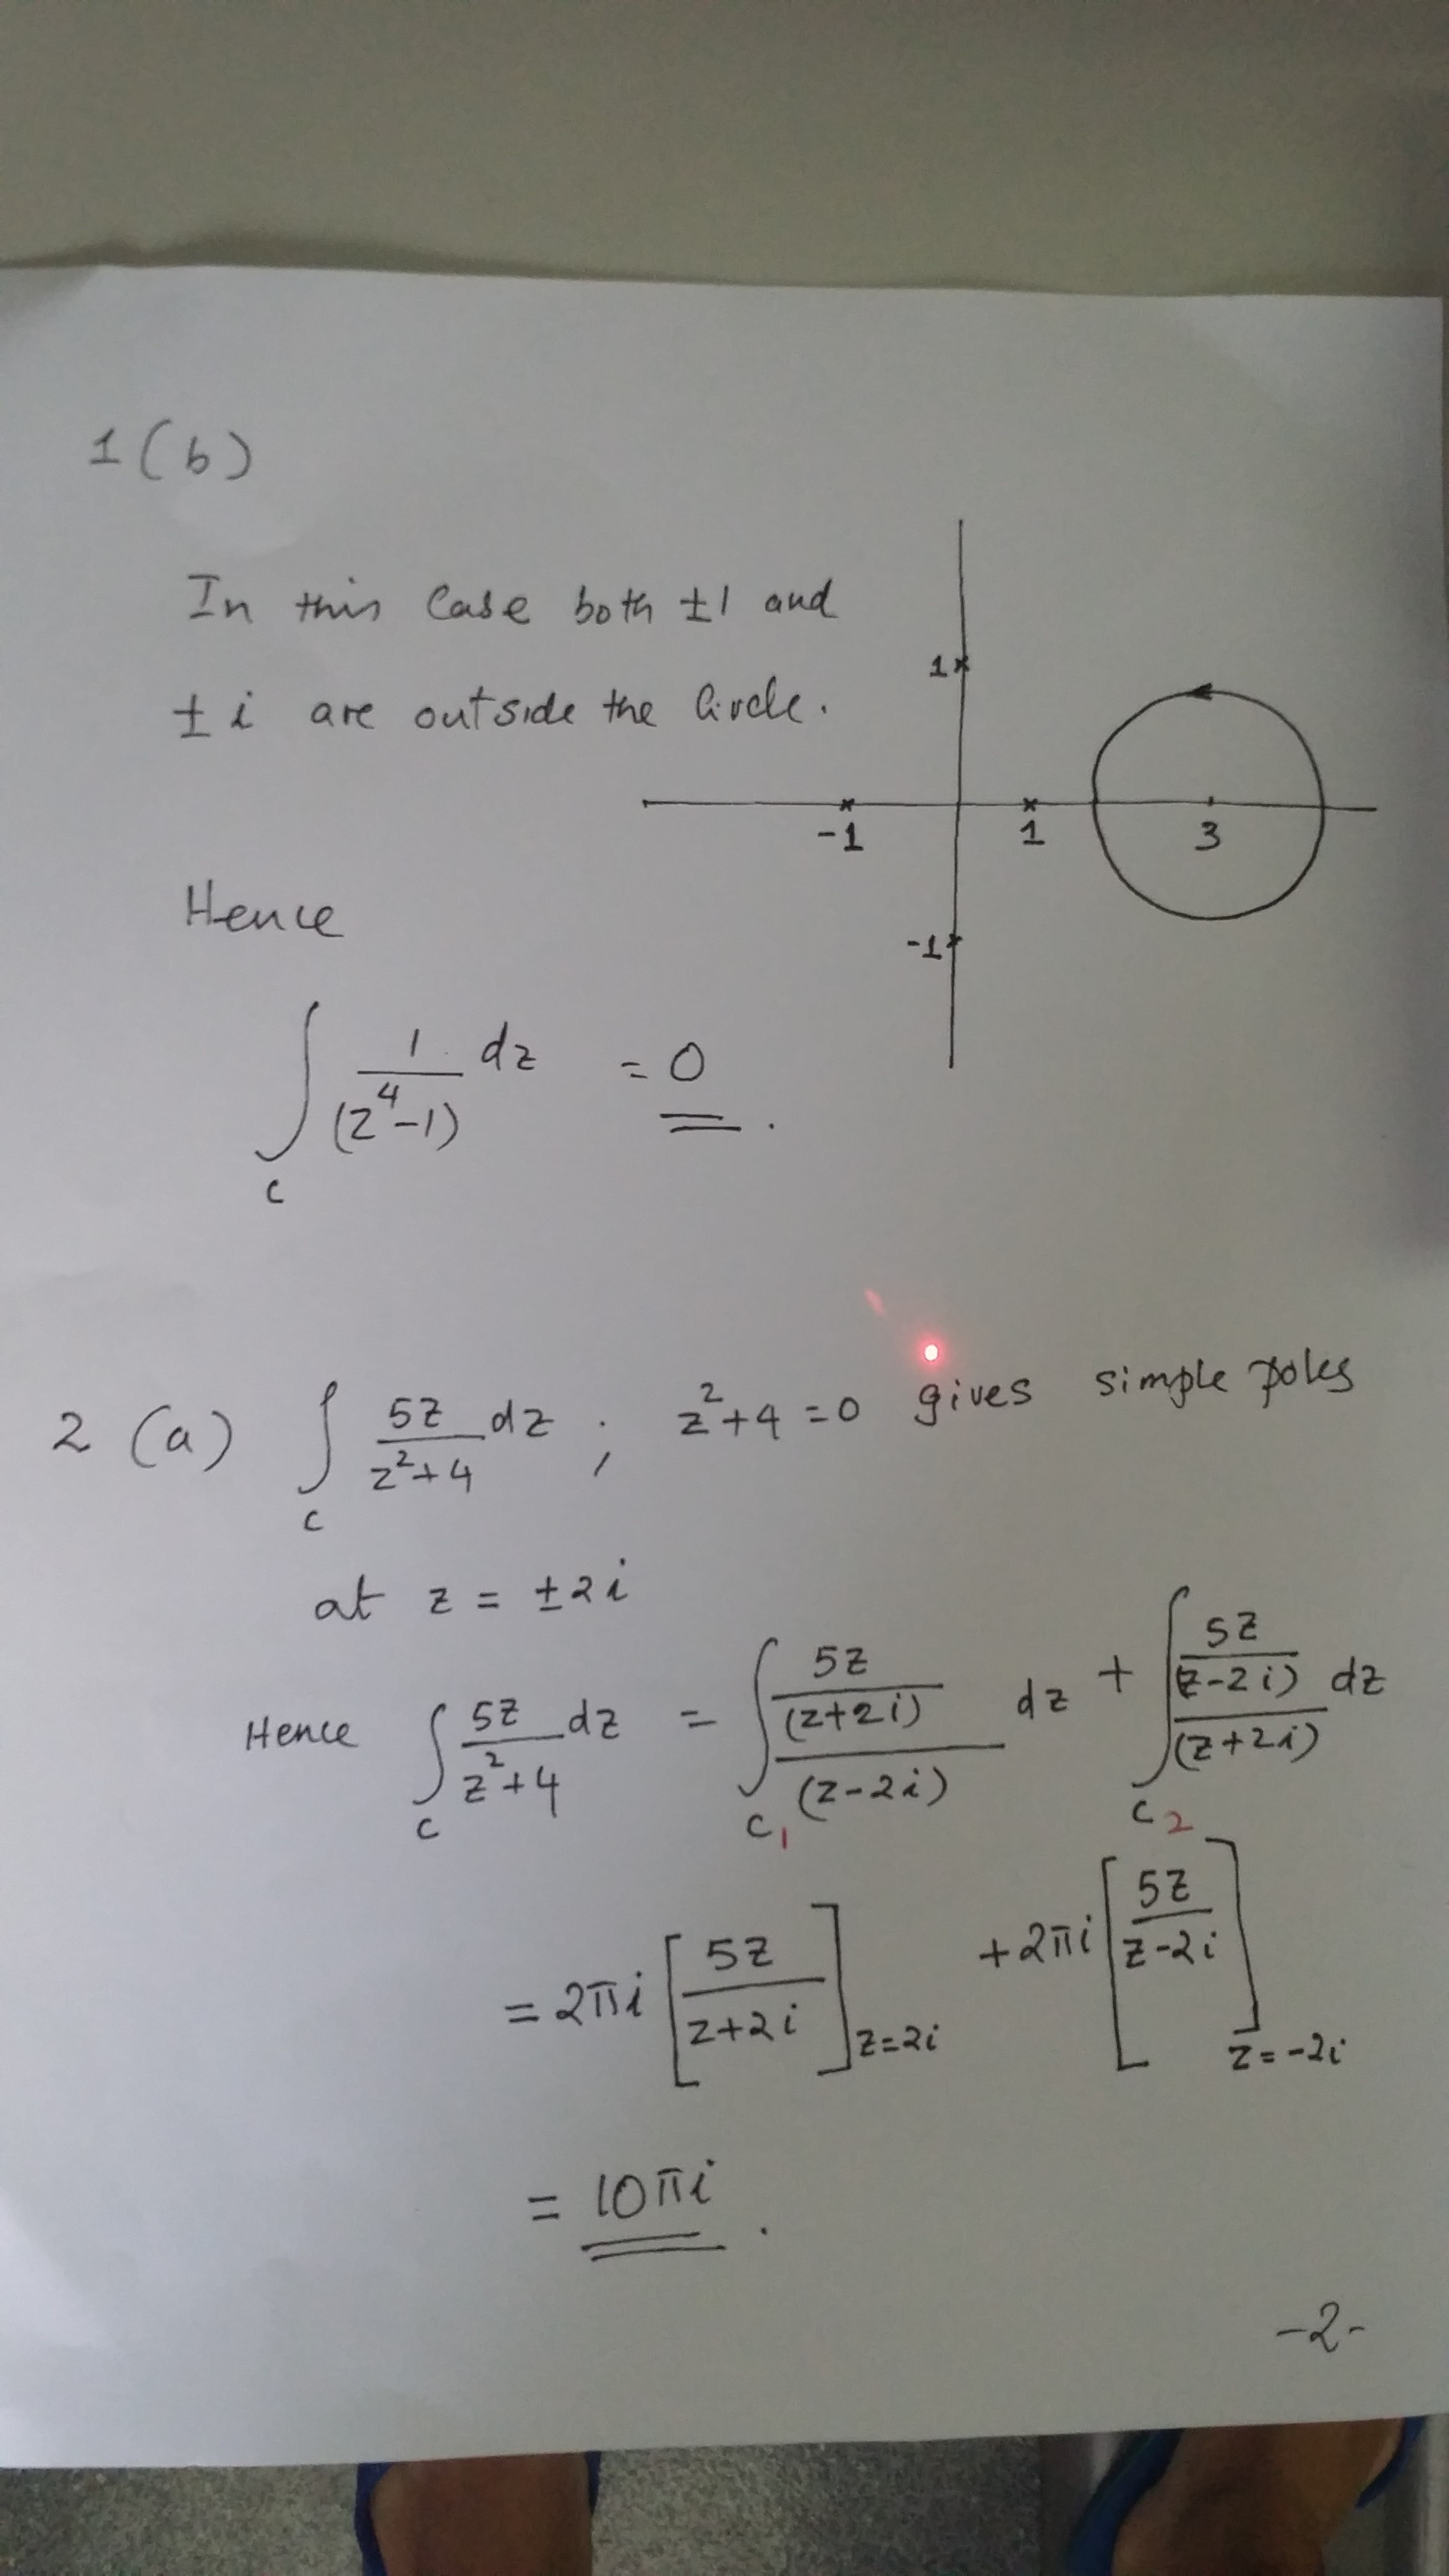 1(b)
In this Case both ±1 and
± i are outside the Circle.
1
-1 1 3
-1
Hence
∫_C 1/(z⁴-1) dz = 0.
2 (a) ∫_C 5z/(z²+4) dz ; z²+4=0 gives simple poles
at z = ±2i
Hence ∫_C 5z/(z²+4) dz = ∫_C₁ (5z/(z+2i))/(z-2i) dz + ∫_C₂ (5z/(z-2i))/(z+2i) dz
= 2πi [5z/(z+2i)]_z=2i +2πi [5z/(z-2i)]_z=-2i
= 10πi.
-2-